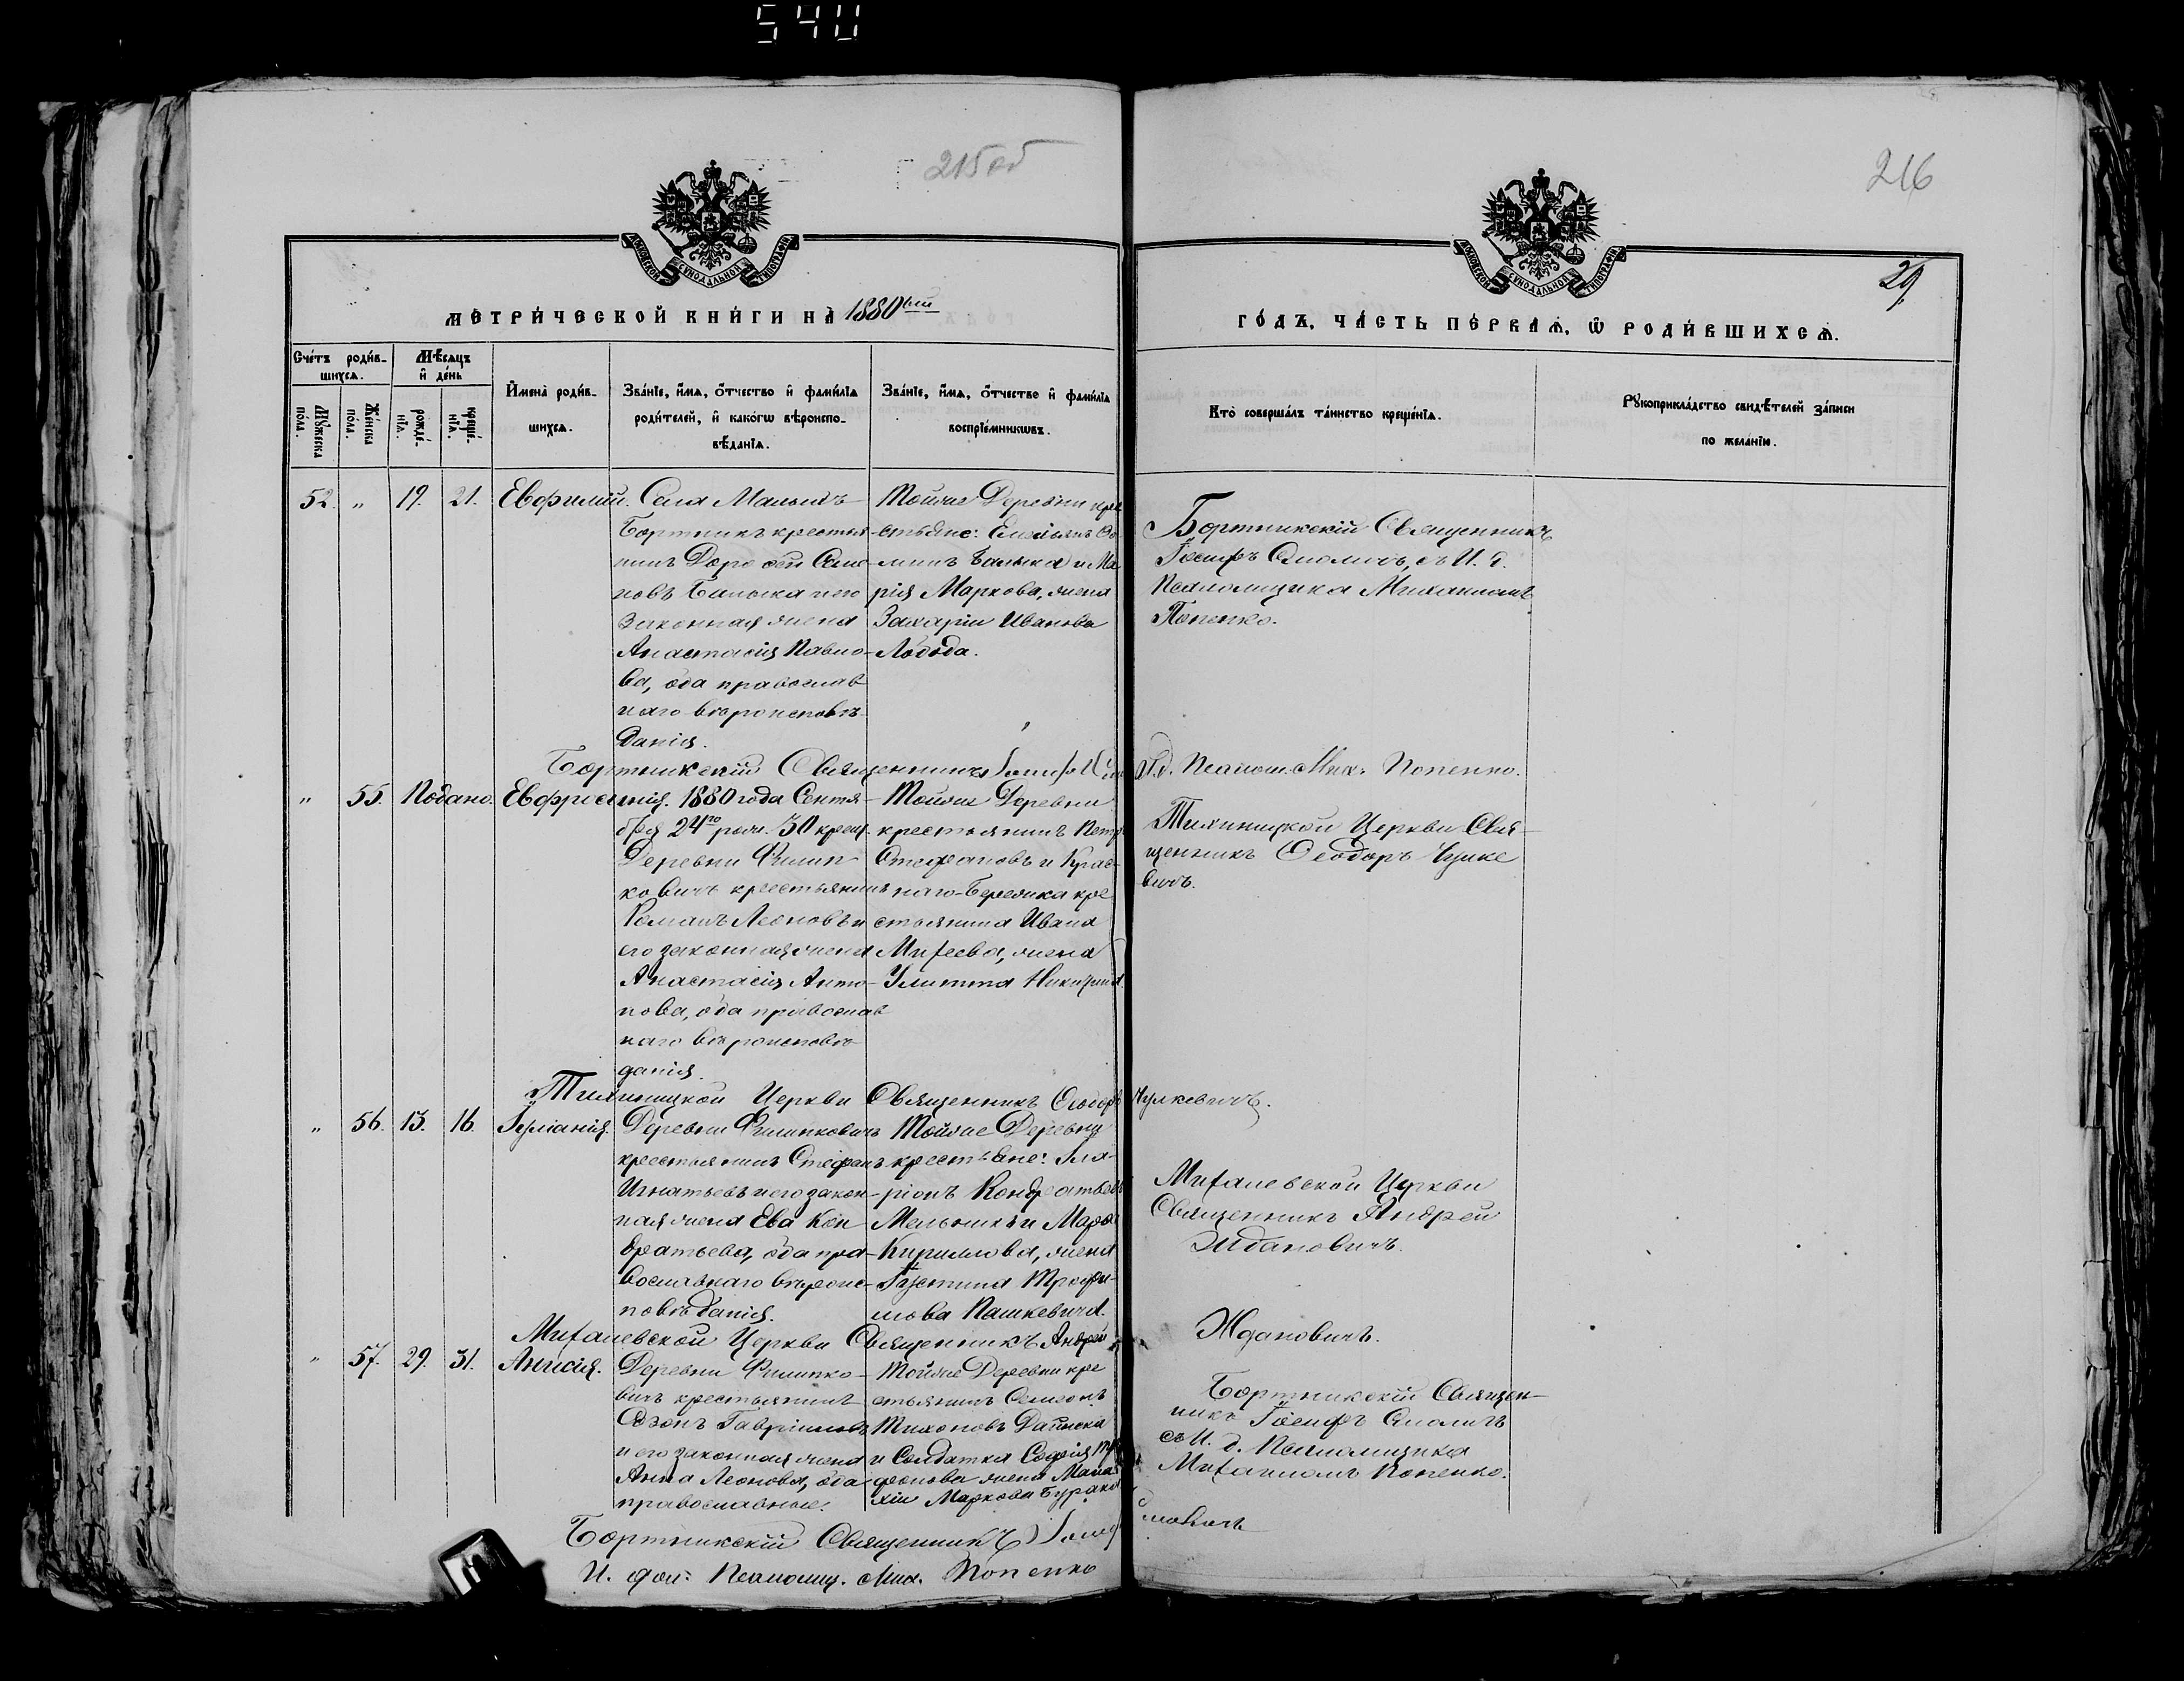 540
215об
216
29
МОСКОВСКОЙ СѴНОДАЛЬНОЙ ТИПОГРАФІИ
МОСКОВСКОЙ СѴНОДАЛЬНОЙ ТИПОГРАФІИ
МЕТРИ́ЧЕСКОЙ КНИ́ГИ НА̀ 1880 ый
ГО́ДЪ, ЧА́СТЬ ПЕ́РВАѦ, Ѡ҆ РОДИ́ВШИХСѦ.
Сче́тъ роди́в-
шихсѧ.
Мꙋ́жеска по́ла.
Же́нска по́ла.
Мѣ́сѧцъ
и҆ де́нь
рожде́-
нїѧ.
креще́-
нїѧ.
И҆мена̀ роди́в-
шихсѧ.
Зва́нїе, и҆́мѧ, ѻ҆́тчество и҆ фами́лїѧ
роди́телей, и҆ како́гѡ вѣроиспо-
вѣ́данїѧ.
Зва́нїе, и҆́мѧ, ѻ҆́тчество и҆ фами́лїѧ
воспрїе́мникѡвъ.
Кто̀ соверша́лъ та́инство креще́нїѧ.
Рꙋкоприкла́дство свидѣ́телей за́писи
по жела́нїю.
52. " 19. 21. Евфимій.
Села Малыхъ
Бортникъ крестья-
нинъ Дорофей Симо-
новъ Балыка и его
законная жена
Анастасія Павло-
ва, оба православ
наго вѣроисповѣ-
данія.
Тойже Деревни кре
стьяне:
Балыка и Ма-
рія Маркова, жена
Захаріи Иванова
Лобода.
Бортникскій Священникъ
Іосифъ Смоличъ, съ И. д.
Псаломщика Михаиломъ
Попенко.
Бортникскій Священникъ Іосифъ
И.д. Псалом. Мих. Попенко.
" 55. Подано. Евфросинія.
1880 года Сентя-
бря 24го рож. 30 крещ.
Деревни Филип-
ковичъ крестьянинъ
Романъ Леоновъ и
его законная жена
Анастасія Анто-
нова, оба православ
наго вѣроисповѣ-
данія.
Тойже Деревни
крестьянинъ Петръ
Стефановъ и Крас-
наго-Бережка кре
стьянина Ивана
Михеева, жена
Улитта
Церкви Свя-
щенникъ Ѳеодоръ
вичъ.
Церкви Священникъ Ѳеодоръ
" 56. 13. 16. Іуліанія.
Деревни Филипковичъ
крестьянинъ Стефанъ
Игнатьевъ и его закон-
ная жена Ева Кон
дратьева, оба пра-
вославнаго вѣроис-
повѣданія.
Тойже Деревни
крестьяне: Ила-
ріонъ Кондратьевъ
Мельникъ и Марѳа
Кириллова, жена
Іустина Трофи-
мова Пашкевича.
Михалевской Церкви
Священникъ Андрей
Ждановичъ.
Михалевской Церкви Священникъ Андрей
Ждановичъ.
" 57. 29. 31. Анисія.
Деревни Филипко-
вичъ крестьянинъ
Созонъ Гавріиловъ
и его законная жена
Анна Леонова, оба
православные.
Тойже Деревни кре
стьянинъ Семеонъ
Тихоновъ
и Солдатка Софія
жена
Маркова Бурака
Бортникскій Священ-
никъ Іосифъ Смоличъ
съ И. д. Псаломщика
Михаиломъ Попенко.
Бортникскій Священникъ Іосиф
Смоличъ
И. дол: Псаломщ. Мих. Попенко